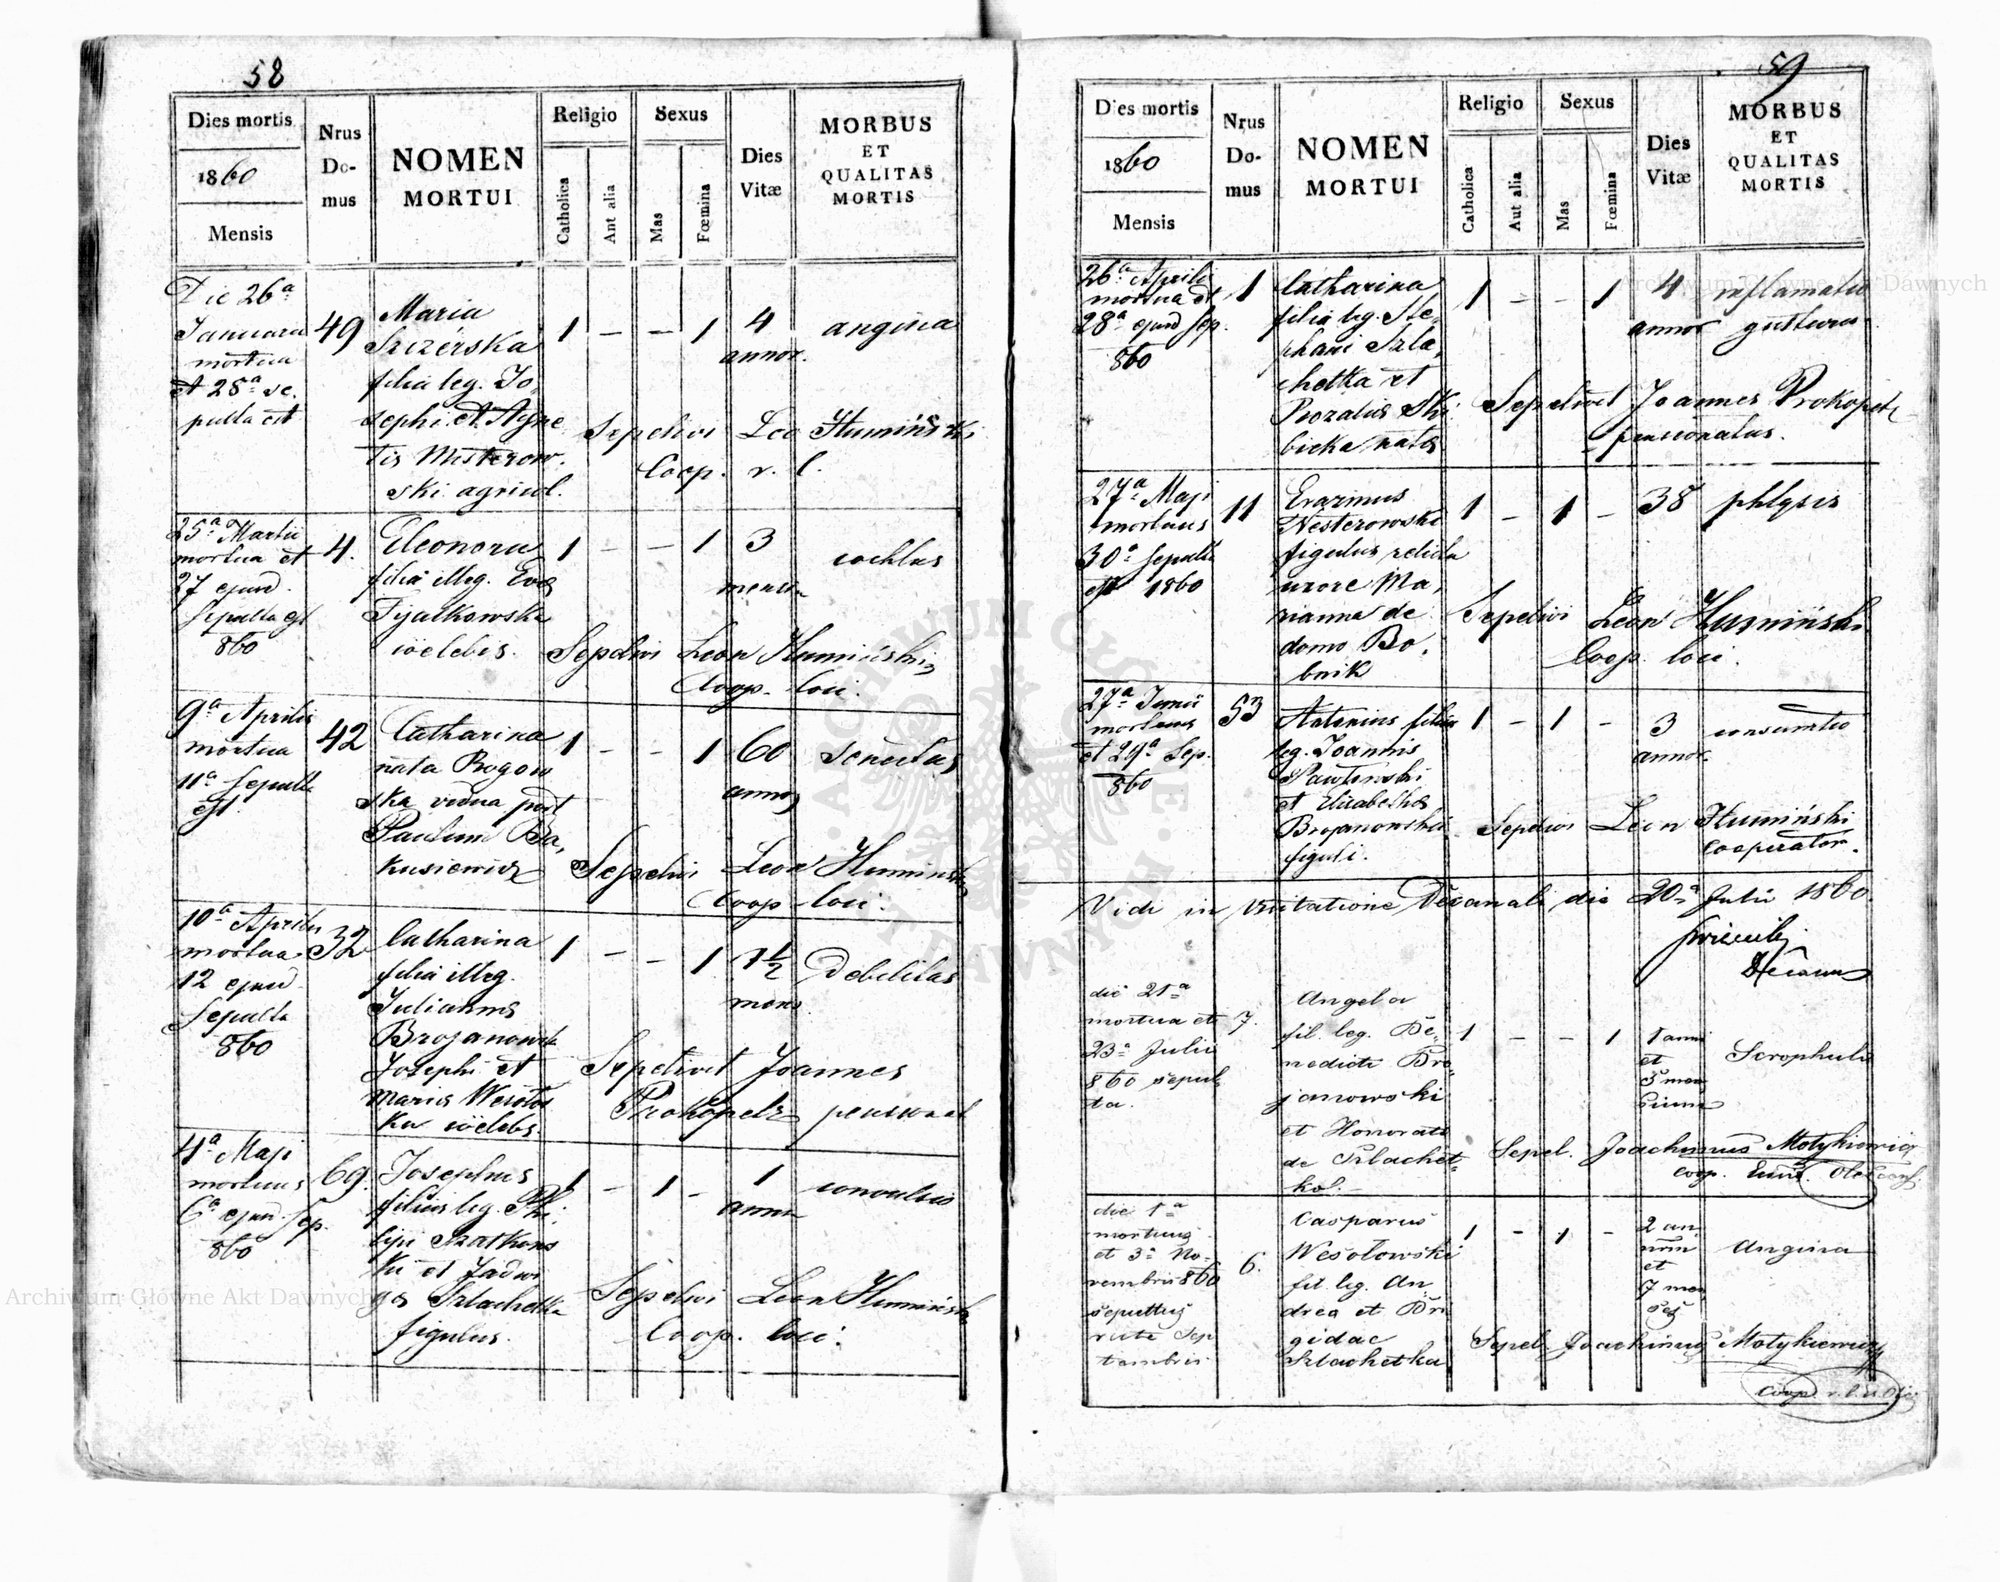 58
Dies mortis
1860
Mensis
Nrus
Do-
mus
NOMEN
MORTUI
Religio
Catholica
Aut alia
Sexus
Mas
Fœmina
Dies
Vitæ
MORBUS
ET
QUALITAS
MORTIS
Die 26a
Januarii
mortua
et 28a se,
pulta est
49
Maria
filia leg. Jo,
sephi et Agne
tis
ski agricol.
1 – – 1
4
annor.
angina
Sepelivi Leo Humiński
Coop. r. l.
25a Martii
mortua et
27 ejusd.
sepulta est
860
4.
Eleonora
filia illeg. Evæ
cœlebis.
1 – – 1
3
mensu
Sepelivi Leon Humiński
Coop. loci.
9a Aprilis
mortua
11a sepulta
est.
42
Catharina
nata Rogow
ska vidua post
Paulum Ba,
kusiewicz
1 – – 1
60
annor
senectus
Sepelivi Leon Humiński
Coop loci.
10a Aprilis
mortua
12 ejusd.
sepulta
860
32
Catharina
filia illeg.
Juliannæ
Brojanowsk
Josephi et
Mariæ Wesołow
ka cœlebs.
1 – – 1
1 1/2
mens
Debilitas
Sepelivit Joannes
Prokopetz pensionat
4a Maji
mortuus
6a ejusd. sep.
860
69.
Josephus
filius leg. Phi,
lipi
ki et Jadwi
gæ Szlachetka
figulus.
1 – 1 –
1
annu
convulsio
Sepelivi Leon Humiński
Coop. loci.
59
Dies mortis
1860
Mensis
Nrus
Do-
mus
NOMEN
MORTUI
Religio
Catholica
Aut alia
Sexus
Mas
Fœmina
Dies
Vitæ
MORBUS
ET
QUALITAS
MORTIS
26a Aprilis
mortua et
28a ejusd sep.
860
1
Catharina
filia leg. Ste,
phani Szla,
chetka et
Rozaliæ Ski
bicka nata
1 – – 1
4
annor
inflamatio
gutturis
Sepelivit Joannes Prokopetz
pensionatus.
27a Maji
mortuus
30a sepult
est 1860
11
Erazmus
Nesterowski
figulus relicta
uxore Ma,
rianna de
domo Bo,
bnik
1 – 1 –
38
phtysis
Sepelivi Leon Humiński
Coop. loci.
27a Junii
mortuus
et 29a Sep.
860
53
Antonius filius
leg. Joannis
Pawłowski
et Elisabethæ
Brojanowska
figuli.
1 – 1 –
3
annor.
consumtio
Sepelivi Leon Humiński
cooperator.
Vidi in Visitatione Decanali die 20a Julii 1860.
Decanus
die 21a
mortua et
23a Julii
860 sepul,
ta.
7.
Angela
fil. leg. Be,
nedicti Bro,
janowski
et Honorata
de Szlachet,
kol. –
1 – – 1
1 anni
et
5 men
sium
Scrophuli
Sepel. Joachimus Motykiewicz
coop.
die 1a
mortuus
et 3a No-
vembris 860
sepultus
6.
Casparus
Wesołowski
fil. leg. An,
drea et Bri
gidae
Szlachetka
1 – 1 –
2 an,
norum
et
7 men
ses
Angina
Sepel. Joachimus Motykiewicz
coop. r. l.
Archiwum Główne Akt Dawnych
Archiwum Główne Akt Dawnych
ARCHIWUM GŁÓWNE AKT DAWNYCH